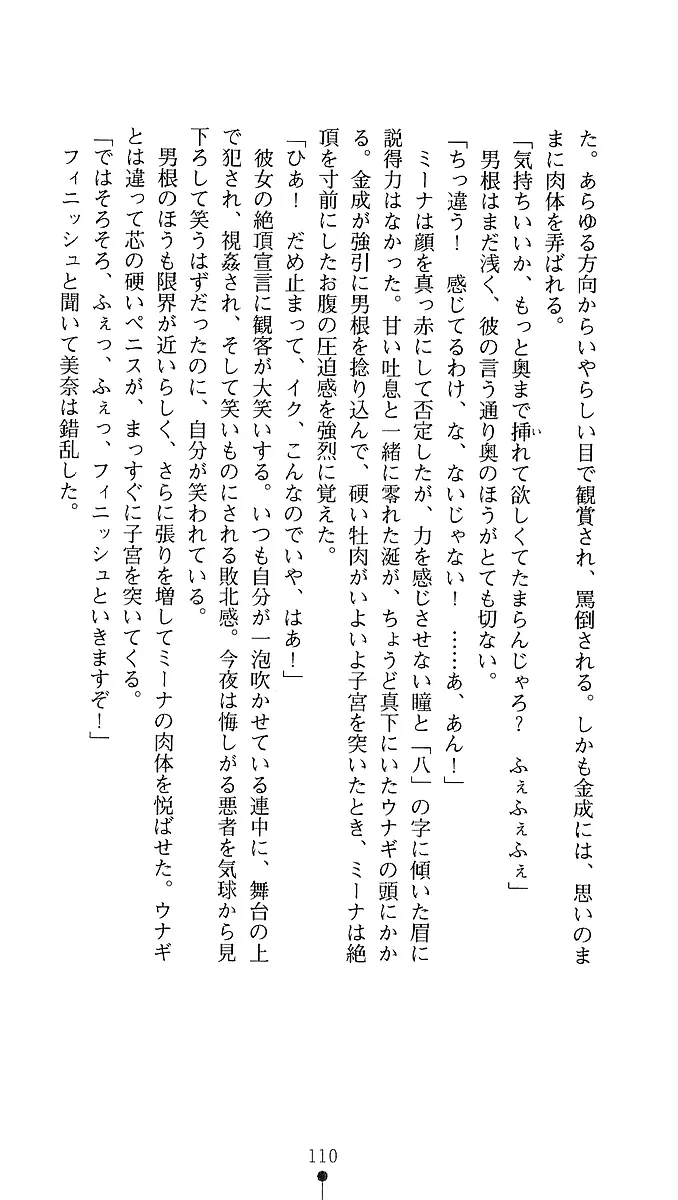 た。あらゆる方向からいやらしい目で観賞され、罵倒される。しかも金成には、思いのま
まに肉体を弄ばれる。
「気持ちいいか、もっと奥まで挿れて欲しくてたまらんじゃろ？　ふぇふぇふぇ」
い
男根はまだ浅く、彼の言う通り奥のほうがとても切ない。
「ちっ違う！　感じてるわけ、な、ないじゃない！　……あ、あん！」
ミーナは顔を真っ赤にして否定したが、力を感じさせない瞳と「八」の字に傾いた眉に
説得力はなかった。甘い吐息と一緒に零れた涎が、ちょうど真下にいたウナギの頭にかか
る。金成が強引に男根を捻り込んで、硬い牡肉がいよいよ子宮を突いたとき、ミーナは絶
頂を寸前にしたお腹の圧迫感を強烈に覚えた。
「ひぁ！　だめ止まって、イク、こんなのでいや、はあ！」
彼女の絶頂宣言に観客が大笑いする。いつも自分が一泡吹かせている連中に、舞台の上
で犯され、視姦され、そして笑いものにされる敗北感。今夜は悔しがる悪者を気球から見
下ろして笑うはずだったのに、自分が笑われている。
男根のほうも限界が近いらしく、さらに張りを増してミーナの肉体を悦ばせた。ウナギ
とは違って芯の硬いペニスが、まっすぐに子宮を突いてくる。
「ではそろそろ、ふぇっ、ふぇっ、フィニッシュといきますぞ！」
フィニッシュと聞いて美奈は錯乱した。
110